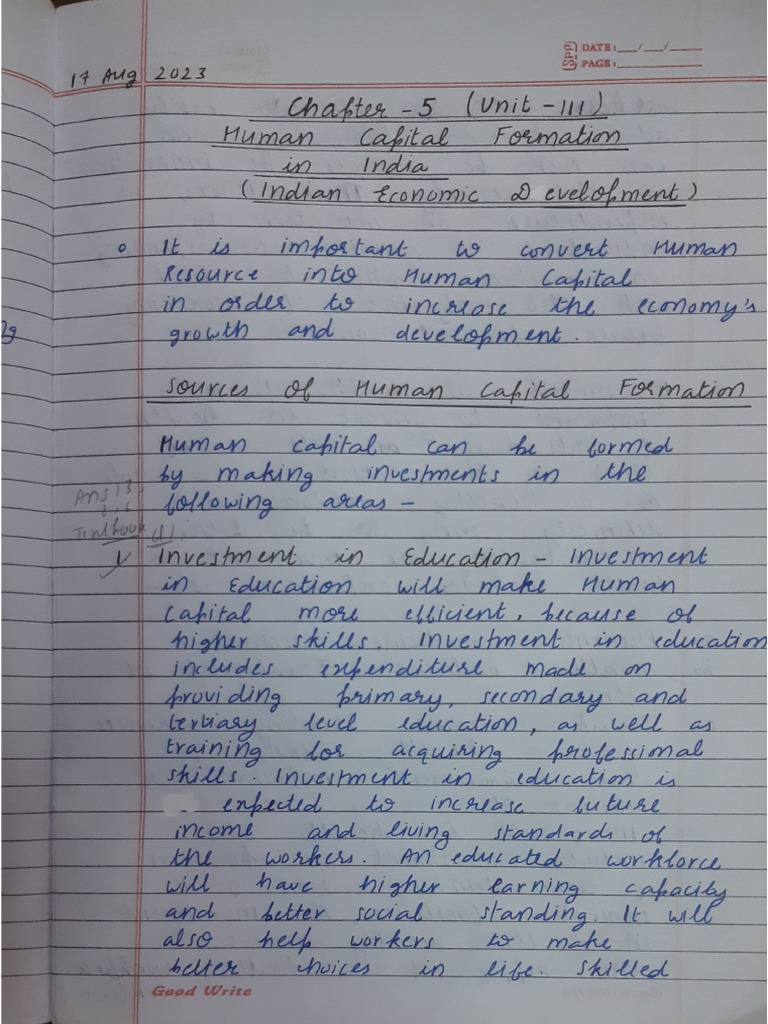 SPP DATE: __/__/__
PAGE:
17 Aug 2023
Chapter - 5 (Unit - III)
Human Capital Formation
in India
(Indian Economic Development)
o It is important to convert Human
Resource into Human Capital
in order to increase the economy's
growth and development.
Sources of Human Capital Formation
Human capital can be formed
by making investments in the
Ans 13,
following areas -
Textbook
1) Investment in Education - Investment
in Education will make Human
Capital more efficient, because of
higher skills. Investment in education
includes expenditure made on
providing primary, secondary and
tertiary level education, as well as
training for acquiring professional
skills. Investment in education is
expected to increase future
income and living standards of
the workers. An educated workforce
will have higher earning capacity
and better social standing. It will
also help workers to make
better choices in life. Skilled
Good Write